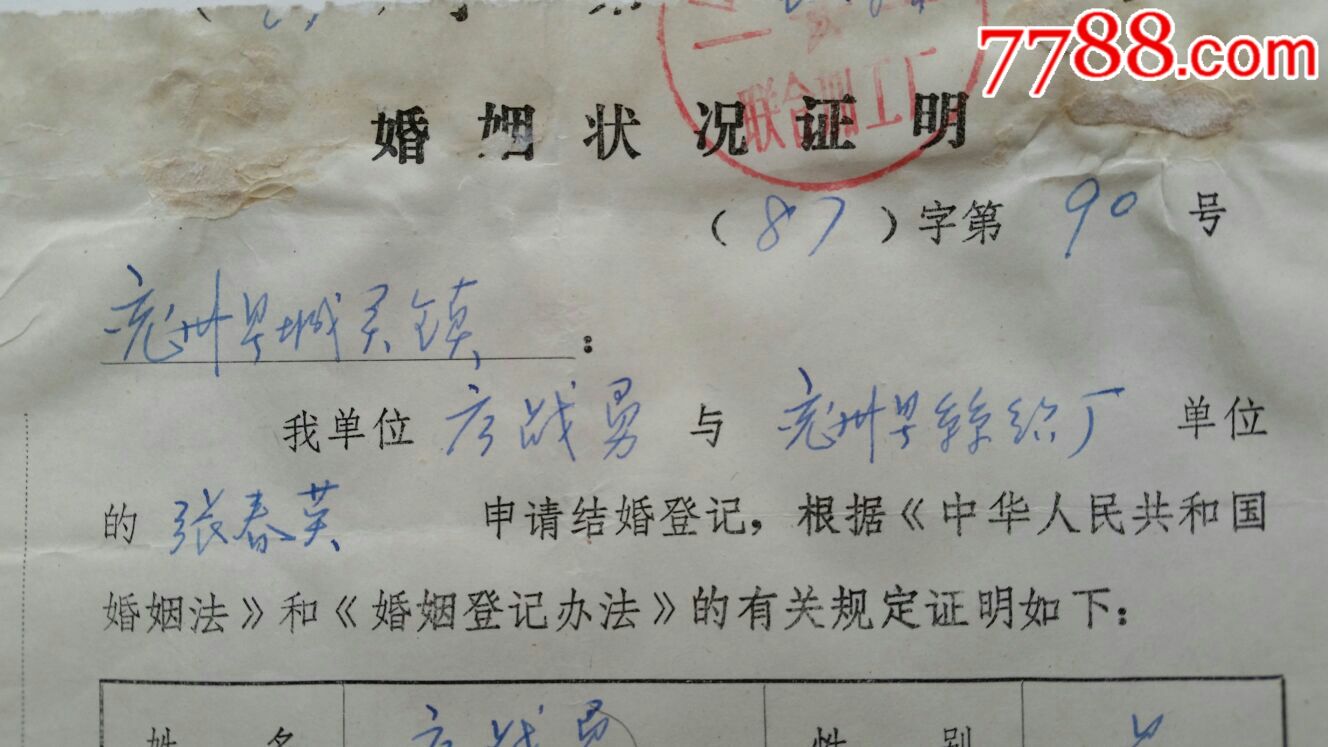 7788.com
联合加工厂
婚姻状况证明
（87）字第 90 号
兖州县城关镇：
我单位 彦战勇 与 兖州县棉织厂 单位
的 张春英 申请结婚登记，根据《中华人民共和国
婚姻法》和《婚姻登记办法》的有关规定证明如下：
姓名 彦战勇 性别